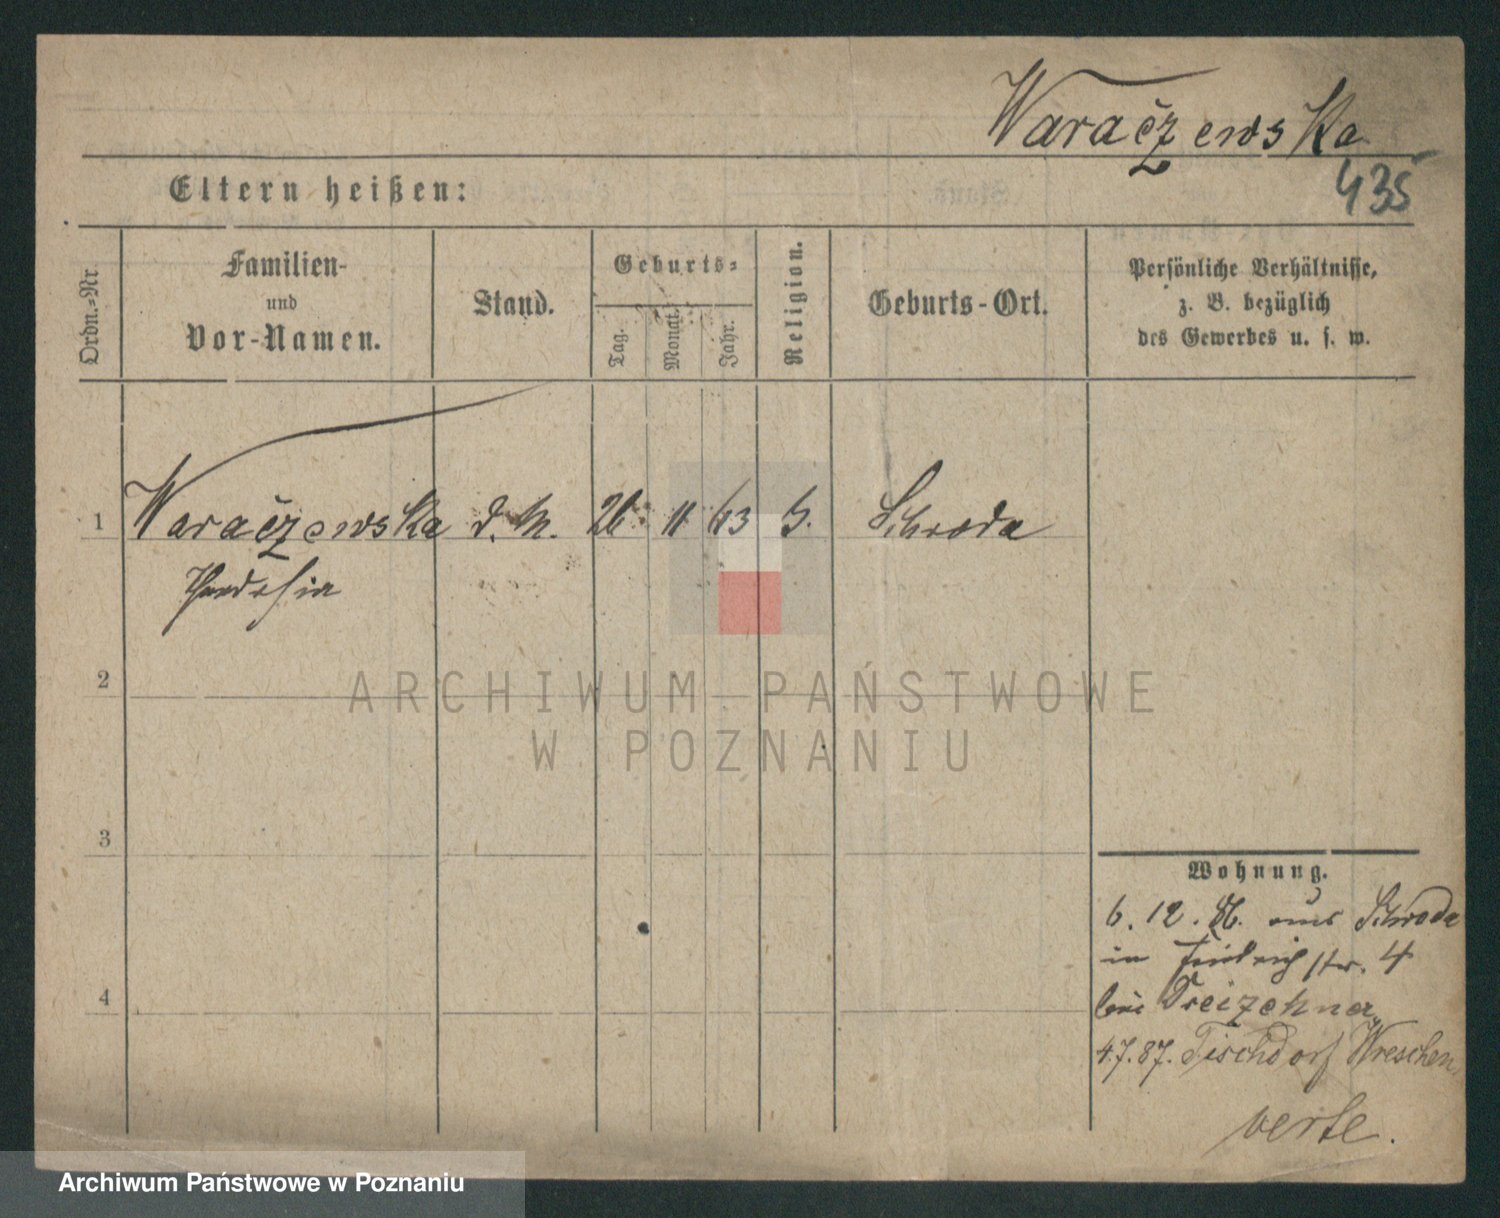 Waraczewska
435
Eltern heißen:
Ordn.-Nr.
Familien-
und
Vor-Namen.
Stand.
Geburts-
Tag.
Monat.
Jahr.
Religion.
Geburts-Ort.
Persönliche Verhältnisse,
z. B. bezüglich
des Gewerbes u. s. w.
1 Waraczewska d. M. 26 11 63 Schroda
2
ARCHIWUM PAŃSTWOWE
W POZNANIU
3
Wohnung.
6. 12. 86. aus Schroda
in Friedrichstr. 4
bei Dreizehner
4
4.7.87. Tischdorf Wreschen
verte.
Archiwum Państwowe w Poznaniu